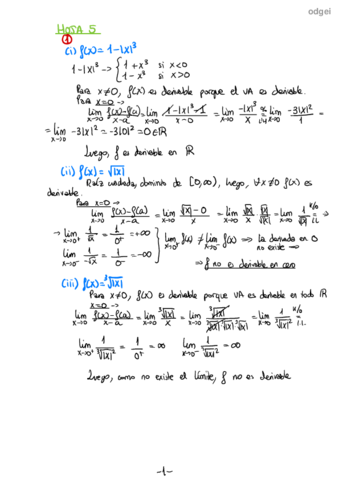 odgei
HOJA 5
①
(i) f(x) = 1-|x|³
1-|x|³ → { 1+x³ si x<0
1-x³ si x>0
Para x≠0, f(x) es derivable porque el VA es derivable.
Para x=0 →
lim x→0 f(x)-f(a)/x-a = lim x→0 1-|x|³-1/x-0 = lim x→0 -|x|³/x = lim x→0 -3|x|²/1 =
= lim x→0 -3|x|² = -3|0|² = 0 ∈ ℝ
Luego, f es derivable en ℝ
(ii) f(x) = √|x|
Raíz cuadrada, dominio de [0,∞), luego, ∀x≠0 f(x) es
derivable.
Para x=0 →
lim x→0 f(x)-f(a)/x-a = lim x→0 √|x|-0/x = lim x→0 √|x|/x = lim x→0
→ lim x→0⁺ = 1/0⁺ = +∞
lim x→0⁻ = 1/0⁻ = -∞
lim x→0⁺ f(x) ≠ lim x→0⁻ f(x) ⇒ la derivada en 0
no existe ⇒
⇒ f no es derivable en cero
(iii) f(x) = ³√|x|
Para x≠0, f(x) es derivable porque VA es derivable en todo ℝ
x=0 →
lim x→0 f(x)-f(a)/x-a = lim x→0 ³√|x|/x = lim x→0
lim x→0⁺ 1/³√|x|² = 1/0⁺ = ∞ lim x→0⁻ 1/³√|x|² = ∞
Luego, como no existe el límite, f no es derivable
-1-